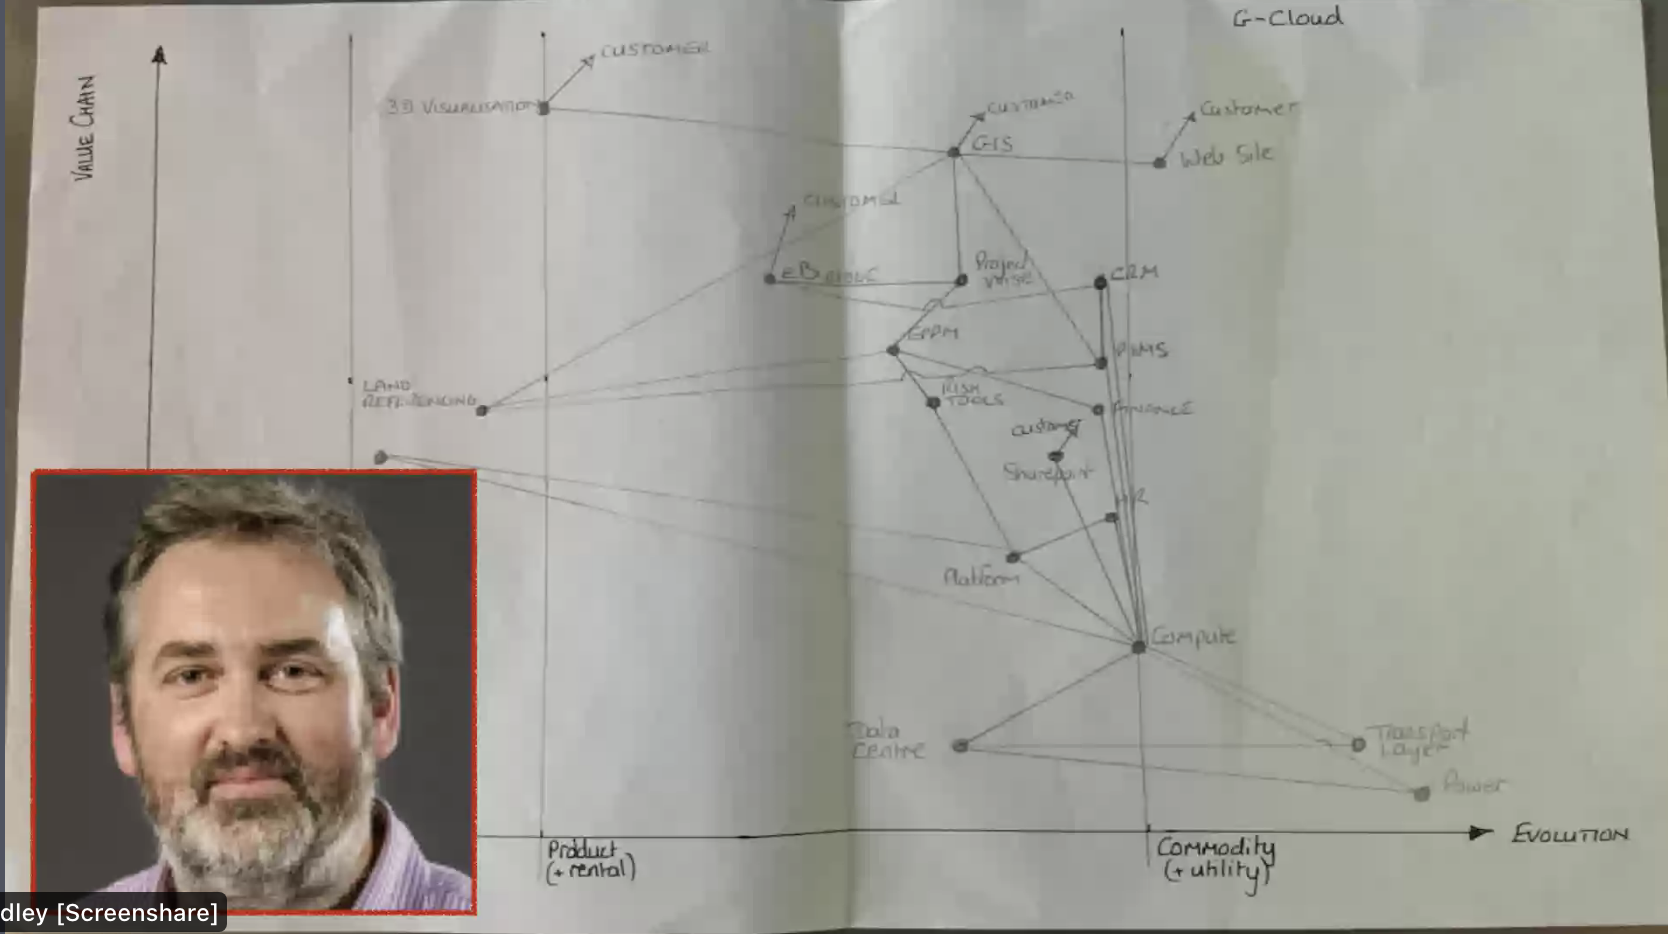 G-Cloud
VALUE CHAIN
CUSTOMER
3D VISUALISATION
CUSTOMER
GIS
Customer
Web Site
CUSTOMER
eB
Project
wise
CRM
EPPM
PWMS
LAND
REFERENCING
RISK
TOOLS
FINANCE
customer
Sharepoint
HR
Platform
Compute
Data
Centre
Transport
Layer
Power
EVOLUTION
Product
(+ rental)
Commodity
(+ utility)
dley [Screenshare]